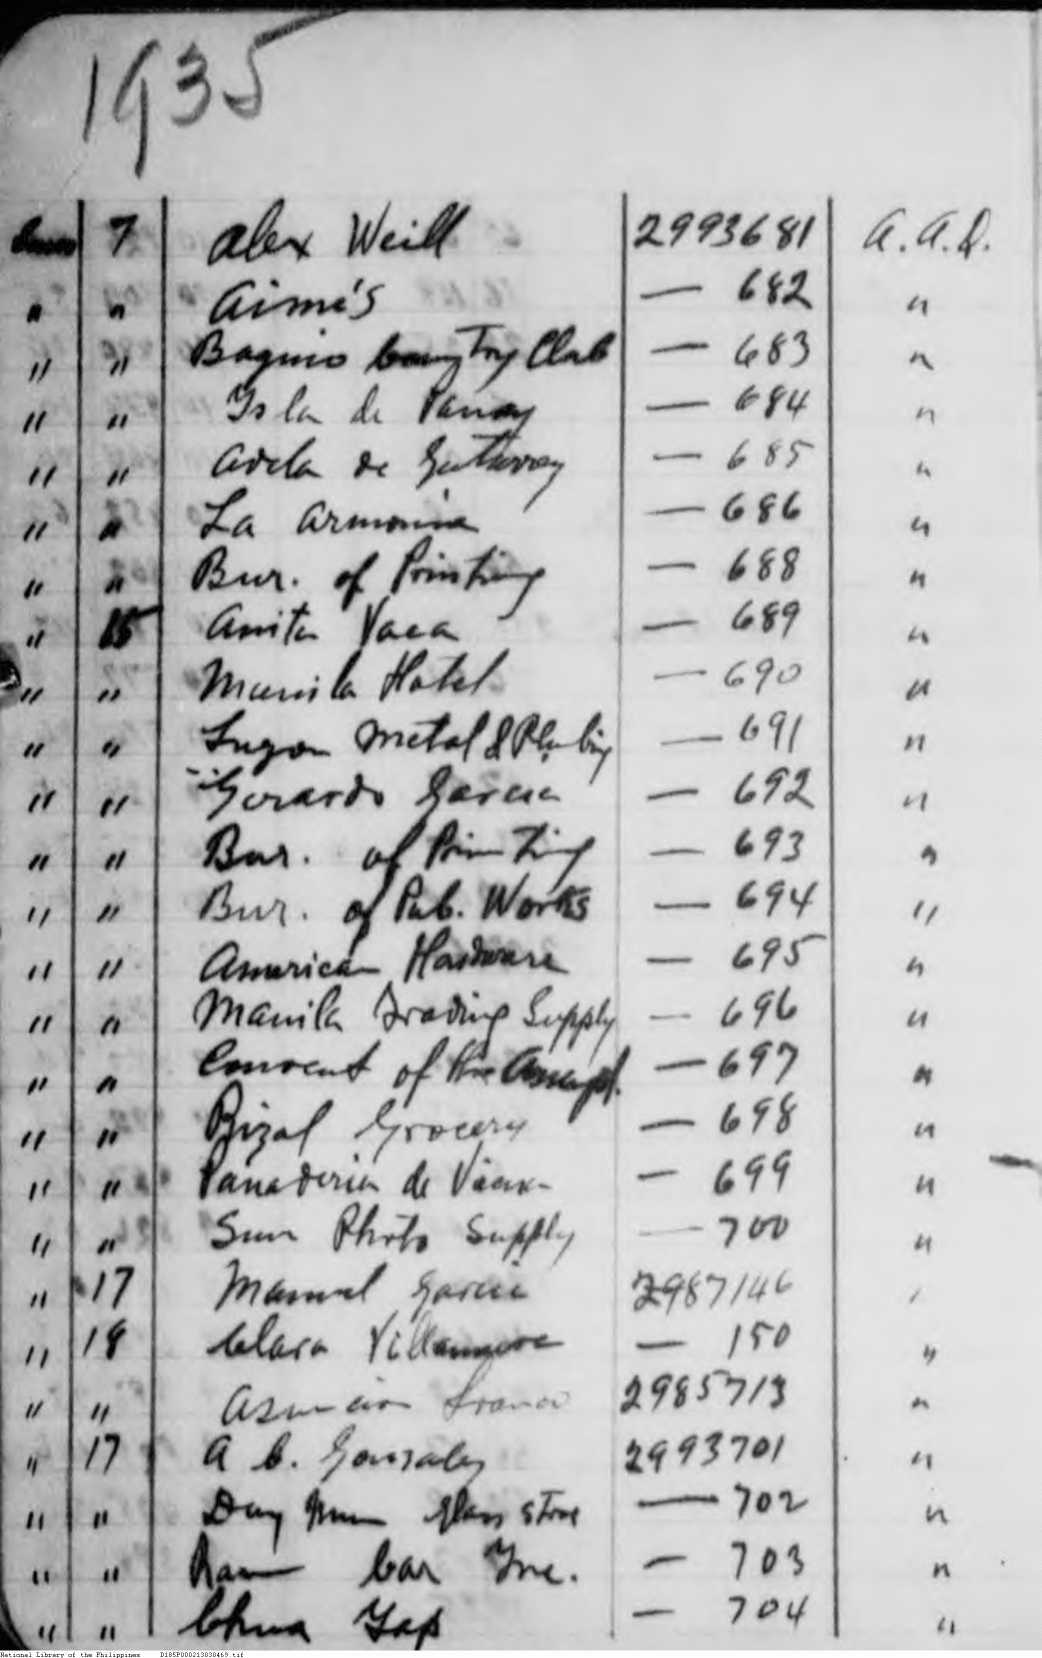 1935
7 Alex Weill 2993681 A.A.D.
" " Aimé's — 682 "
" " Baguio Country Club — 683 "
" " Isla de Panay — 684 "
" " Adela de — 685 "
" " La Armonia — 686 "
" " Bur. of Printing — 688 "
" 15 Anita Vaca — 689 "
" " Manila Hotel — 690 "
" " Luzon Metal & Plubing — 691 "
" " Gerardo Garcia — 692 "
" " Bur. of Printing — 693 "
" " Bur. of Pub. Works — 694 "
" " American Hardware — 695 "
" " Manila Trading Supply — 696 "
" " Convent of the Assumpt. — 697 "
" " Rizal Grocery — 698 "
" " Panaderia de — 699 "
" " Sun Photo Supply — 700 "
" 17 Manuel Garcia 2987146 "
" 18 Clara Villanueva — 150 "
" " Asuncion Franco 2985713 "
" 17 A C. Gonzalez 2993701 "
" " Glass Store — 702 "
" " Bar Inc. — 703 "
" " Chua Yap — 704 "
National Library of the Philippines D185P000213838469.tif